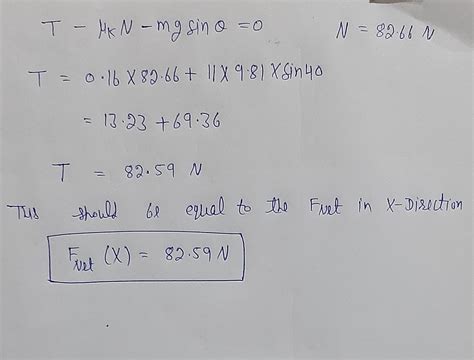 T - μkN - mg sin θ = 0 N = 82.66 N
T = 0.16 X 82.66 + 11 X 9.81 X sin 40
= 13.23 + 69.36
T = 82.59 N
This should be equal to the Fnet in X-Direction
Fnet (X) = 82.59 N